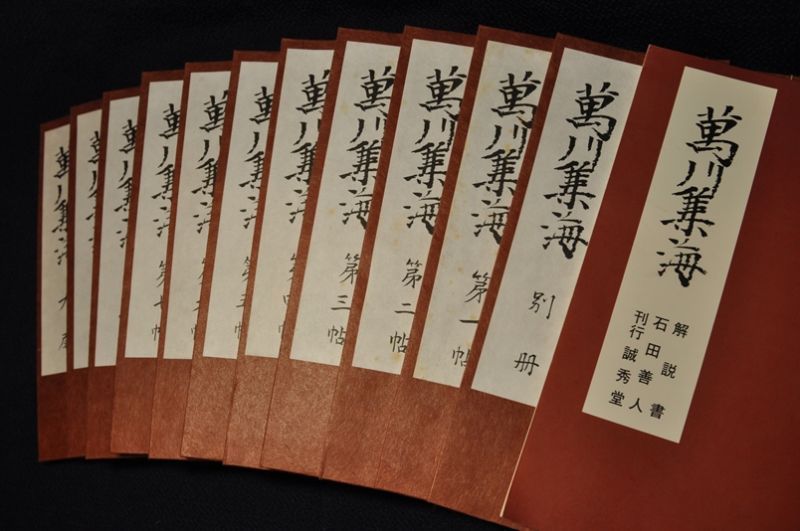 萬川集海
解説書
石田善人
刊行誠秀堂
萬川集海
別册
萬川集海
第一帖
萬川集海
第二帖
萬川集海
第三帖
萬川集海
第四帖
萬川集海
第五帖
萬川集海
萬川集海
第七帖
萬川集海
萬川集海
萬川集海